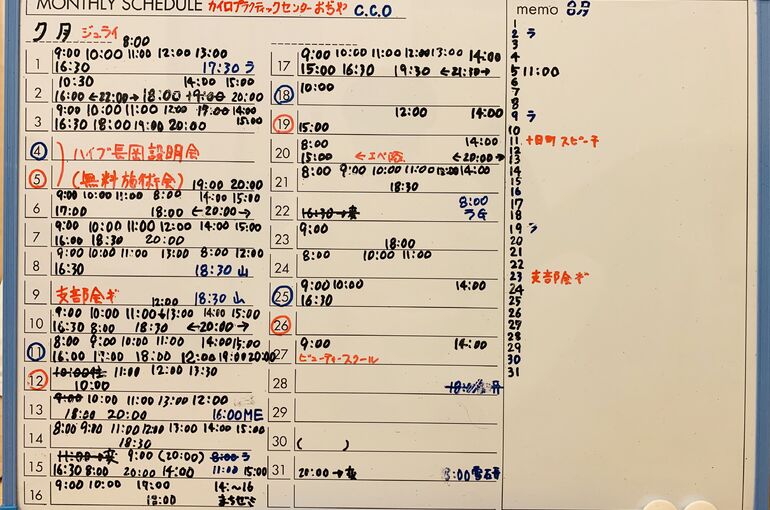 MONTHLY SCHEDULE カイロプラクティックセンターおぢや C.C.O
7月 ジュライ
8:00
1 9:00 10:00 11:00 12:00 13:00
16:30 17:30 ラ
2 10:30 14:00 15:00
16:00 ←22:00→ 18:00 19:00 20:00
3 9:00 10:00 11:00 12:00 13:00 14:00
16:30 18:00 19:00 20:00 15:00
4 ハイブ長岡説明会
5 (無料施術会) 19:00 20:00
6 9:00 10:00 11:00 8:00 14:00 15:00
17:00 18:00 ←20:00→
7 9:00 10:00 11:00 12:00 14:00 15:00
16:00 18:30 20:00
8 9:00 10:00 11:00 13:00 8:00 12:00
16:30 18:30 山
9 支部会ギ 12:00 18:30 山
10 9:00 10:00 11:00 13:00 14:00 15:00
16:30 8:00 18:30 ←20:00→
11 8:00 9:00 10:00 11:00 14:00 15:00
16:00 17:00 18:00 12:00 19:00 20:00
12 10:00 11:00 12:00 13:30
10:00
13 9:00 10:00 11:00 13:00 12:00
18:00 20:00 16:00 ME
14 8:00 9:00 11:00 12:00 13:00 14:00 15:00
18:30
15 11:00→変 9:00 (20:00) 8:00 ラ
16:30 8:00 20:00 14:00 11:00 15:00
16 9:00 10:00 19:00 14:~16
18:00 まちゼミ
17 9:00 10:00 11:00 12:00 13:00 14:00
15:00 16:30 19:30 ←21:30→
18 10:00
19 12:00 14:00
15:00
20 8:00 14:00
15:00 ←20:00→
21 8:00 9:00 10:00 11:00 12:00 14:00
18:30
22 16:30→変 8:00
ラG
23 9:00
18:00
24 8:00 10:00 11:00
25 9:00 10:00 14:00
16:30
26
27 9:00 14:00
ビューティースクール
28 18:00
29
30 ( )
31 20:00→変
memo 8月
1
2 ラ
3
4
5 11:00
6
7
8
9 ラ
10
11 十日町 スピーチ
12
13
14
15
16
17
18
19 ラ
20
21
22
23 支部会ギ
24
25
26
27
28
29
30
31